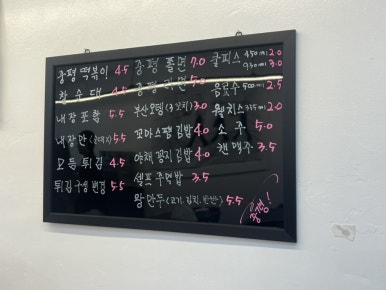 증평 떡볶이 4.5
찹수대 4.5
내장포함 5.5
내장만 5.5
모듬 튀김 4.5
튀김 구성 변경 5.5
증평 쫄면 7.0
증평 라면 5.0
부산오뎅 (3꼬치) 3.0
꼬마스팸김밥 4.0
야채꽁지김밥 4.0
셀프 주먹밥 3.5
왕만두 (고기, 김치, 반반) 5.5
쿨피스 450ml 2.0
930ml 3.0
음료수 500ml 2.5
웰치스 355ml 2.0
소주 5.0
캔맥주 3.5